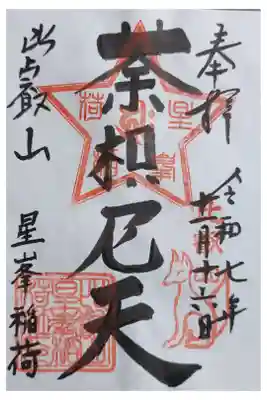 奉拝
令和七年
月十六日
荼枳尼天
比叡山
星峯稲荷
星峯稲荷